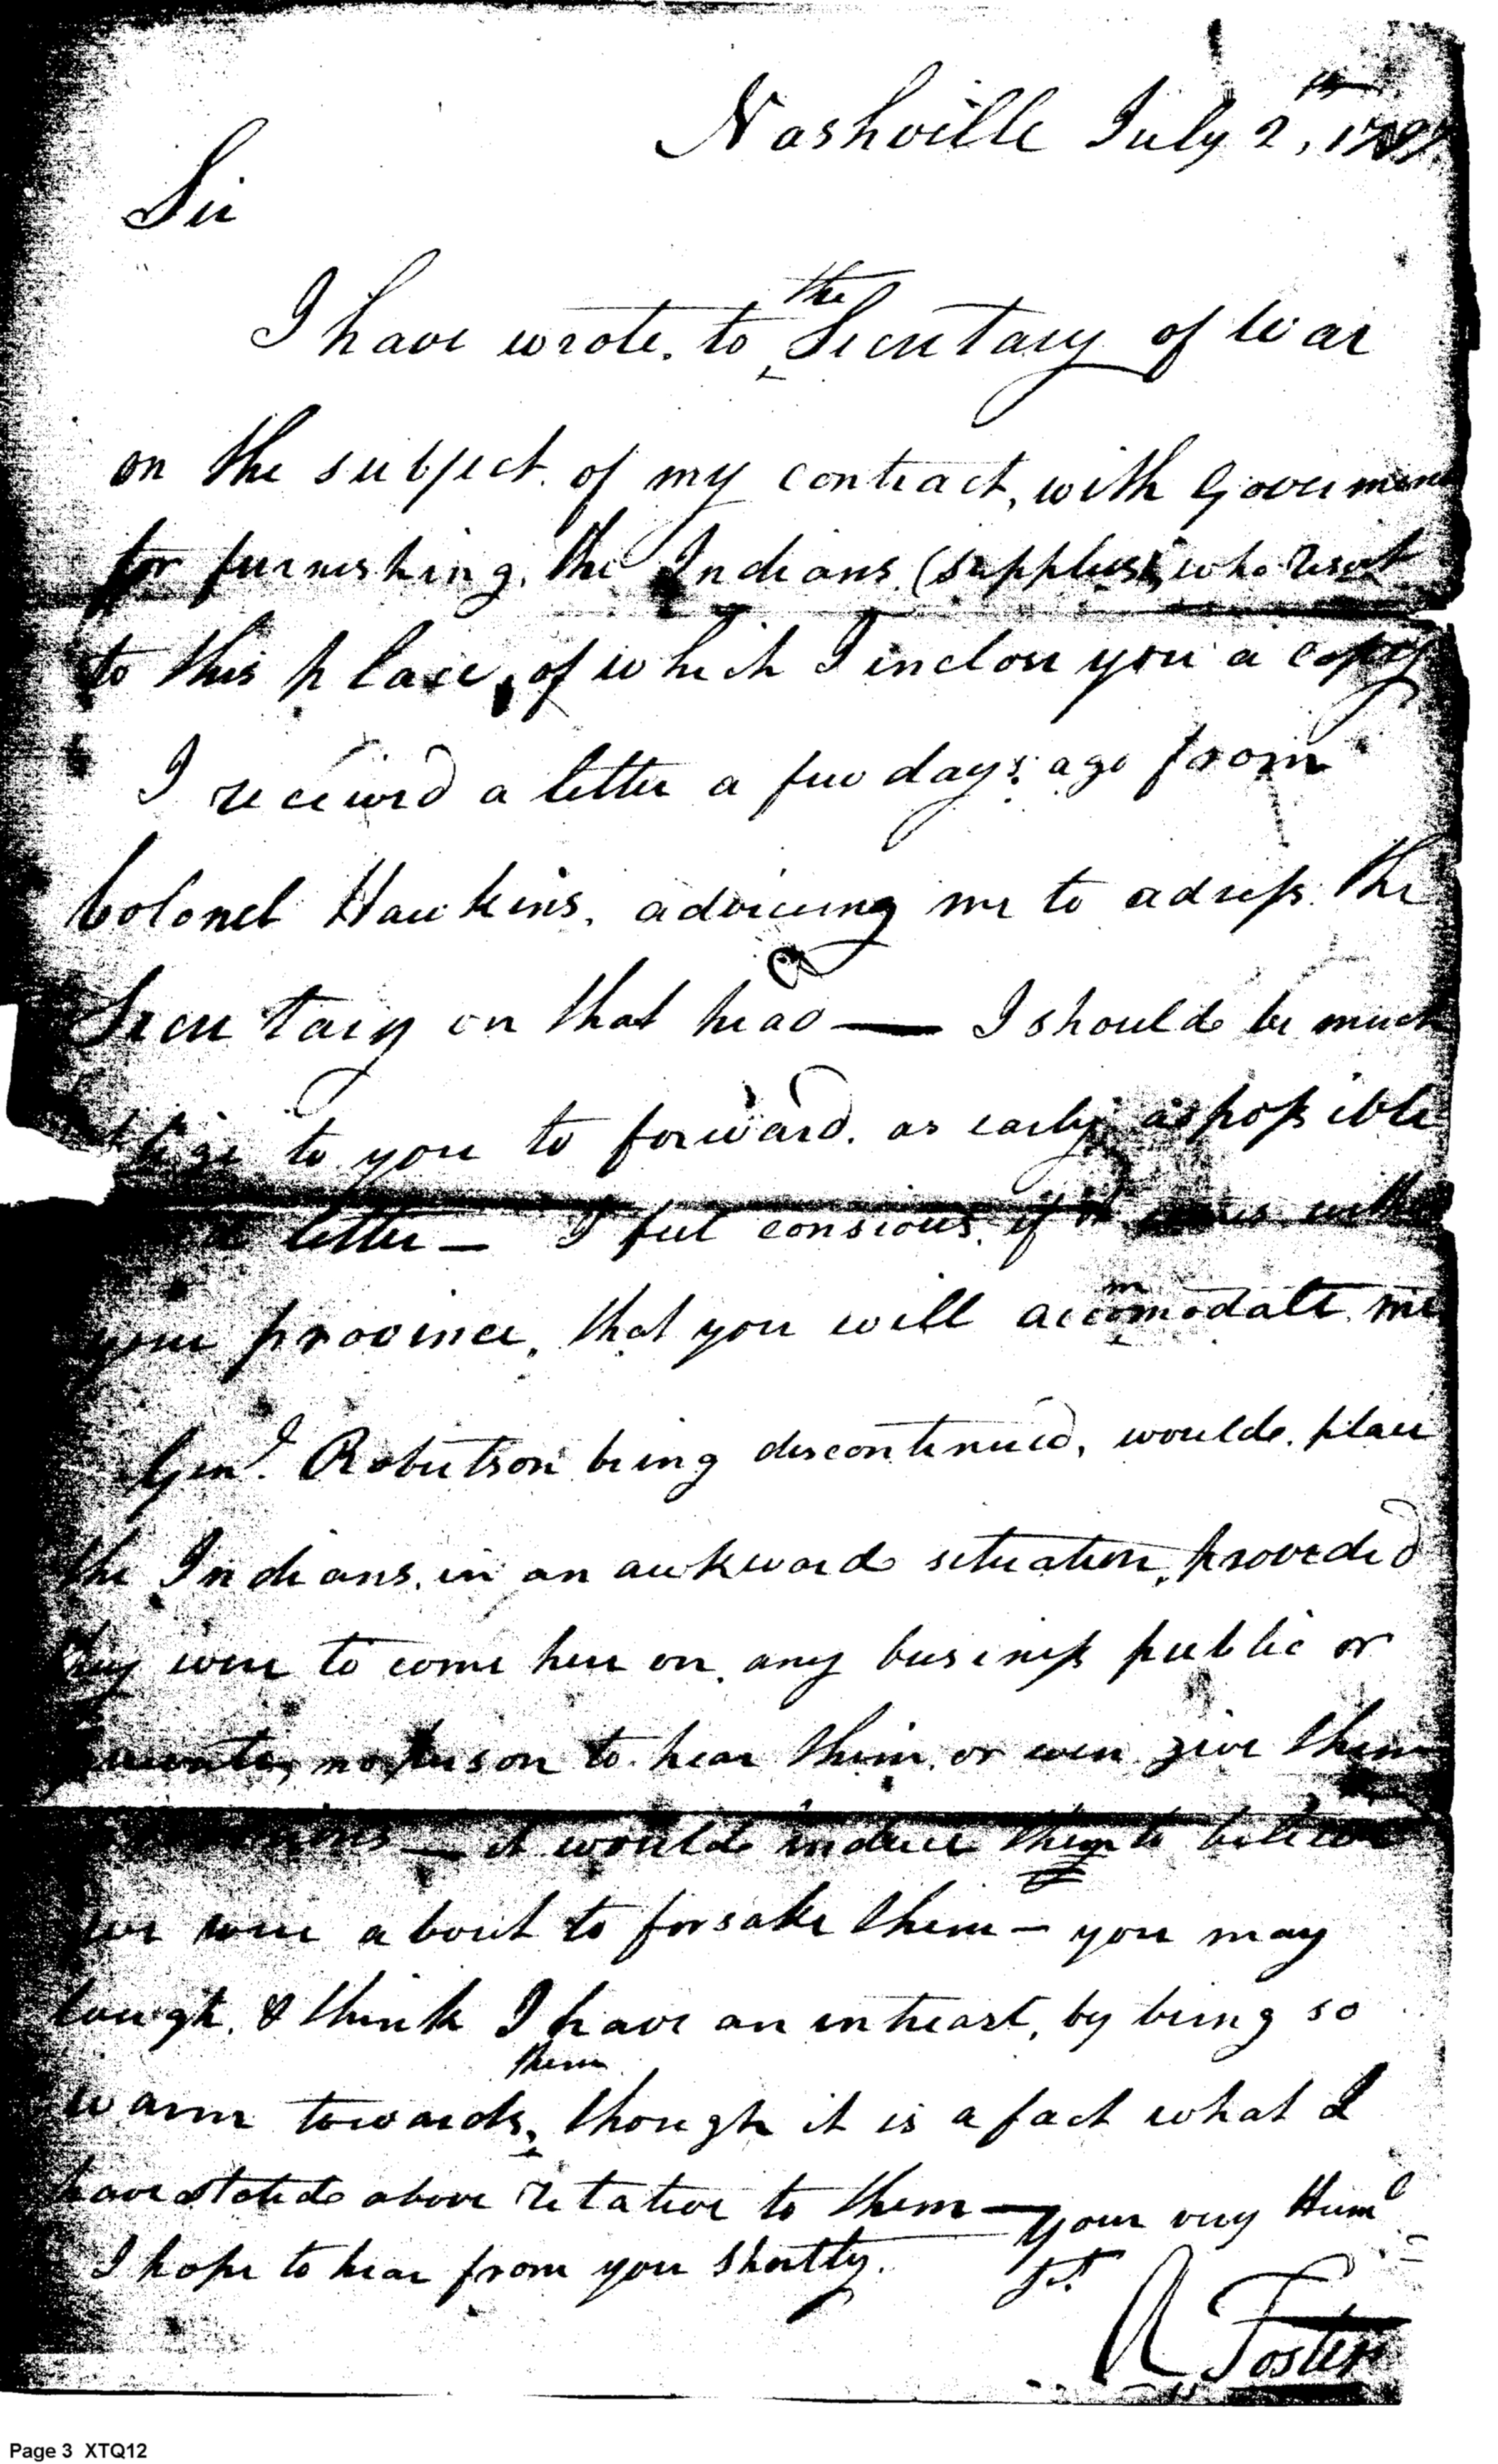 Nashville July 2, 1797
Sir
I have wrote to the Secretary of War
on the subject of my contract, with Goverment
for furnishing the Indians (supplies) who resort
to this place, of which I inclose you a copy
I received a letter a few days ago from
Colonel Hawkins, advising me to adress the
Secretary on that head — I should be much
to you to forward, as early as possible
letter — I feel consious, if it comes within
your province, that you will accommodate me
Genl. Robertson being discontinued, woulde place
the Indians, in an awkward situation, provided
they were to come here on any business public or
private, no person to hear them, or even give them
— it woulde induce them to believe
we were about to forsake them — you may
laugh, & think I have an intreast, by being so
warm towards them, though it is a fact what I
have stated above relative to them —
I hope to hear from you shortly.
your very Huml
St.
A Foster
Page 3 XTQ12